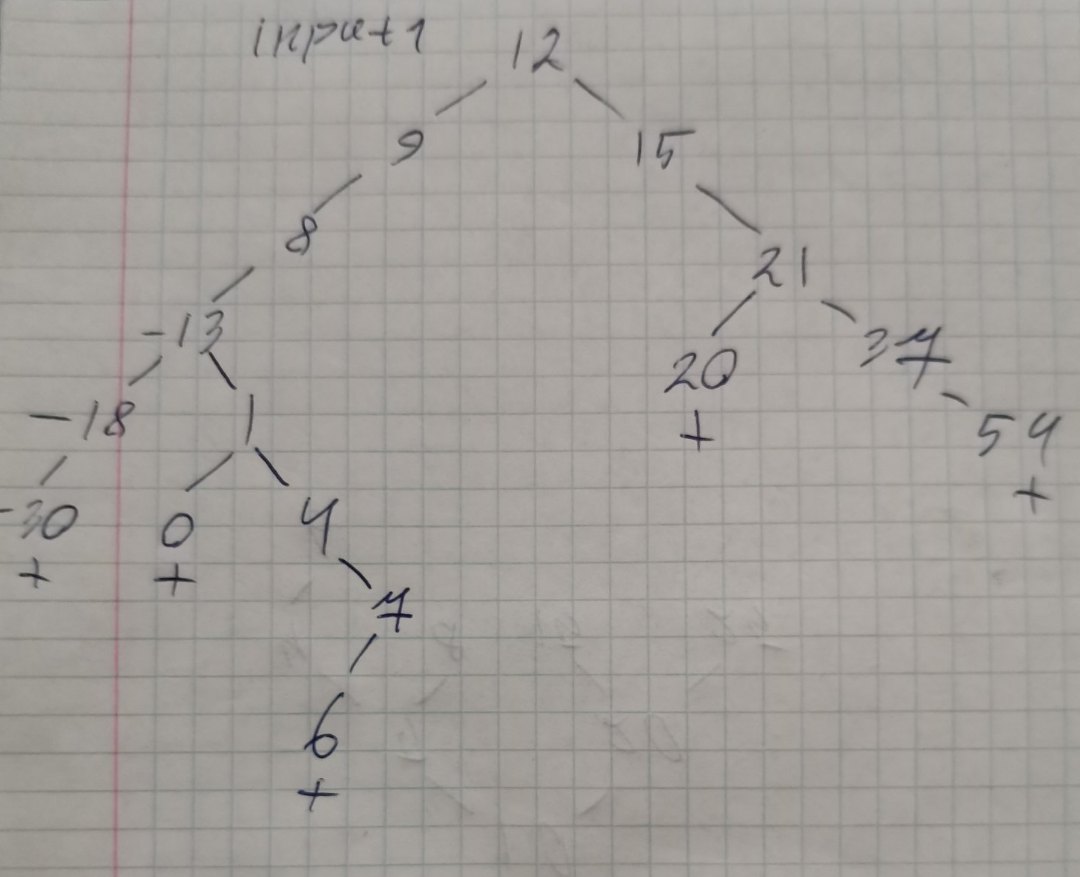 input1 12
9 15
8
21
-13
20 37
+
-18 1 54
+
-30 0 4
+ +
7
6
+